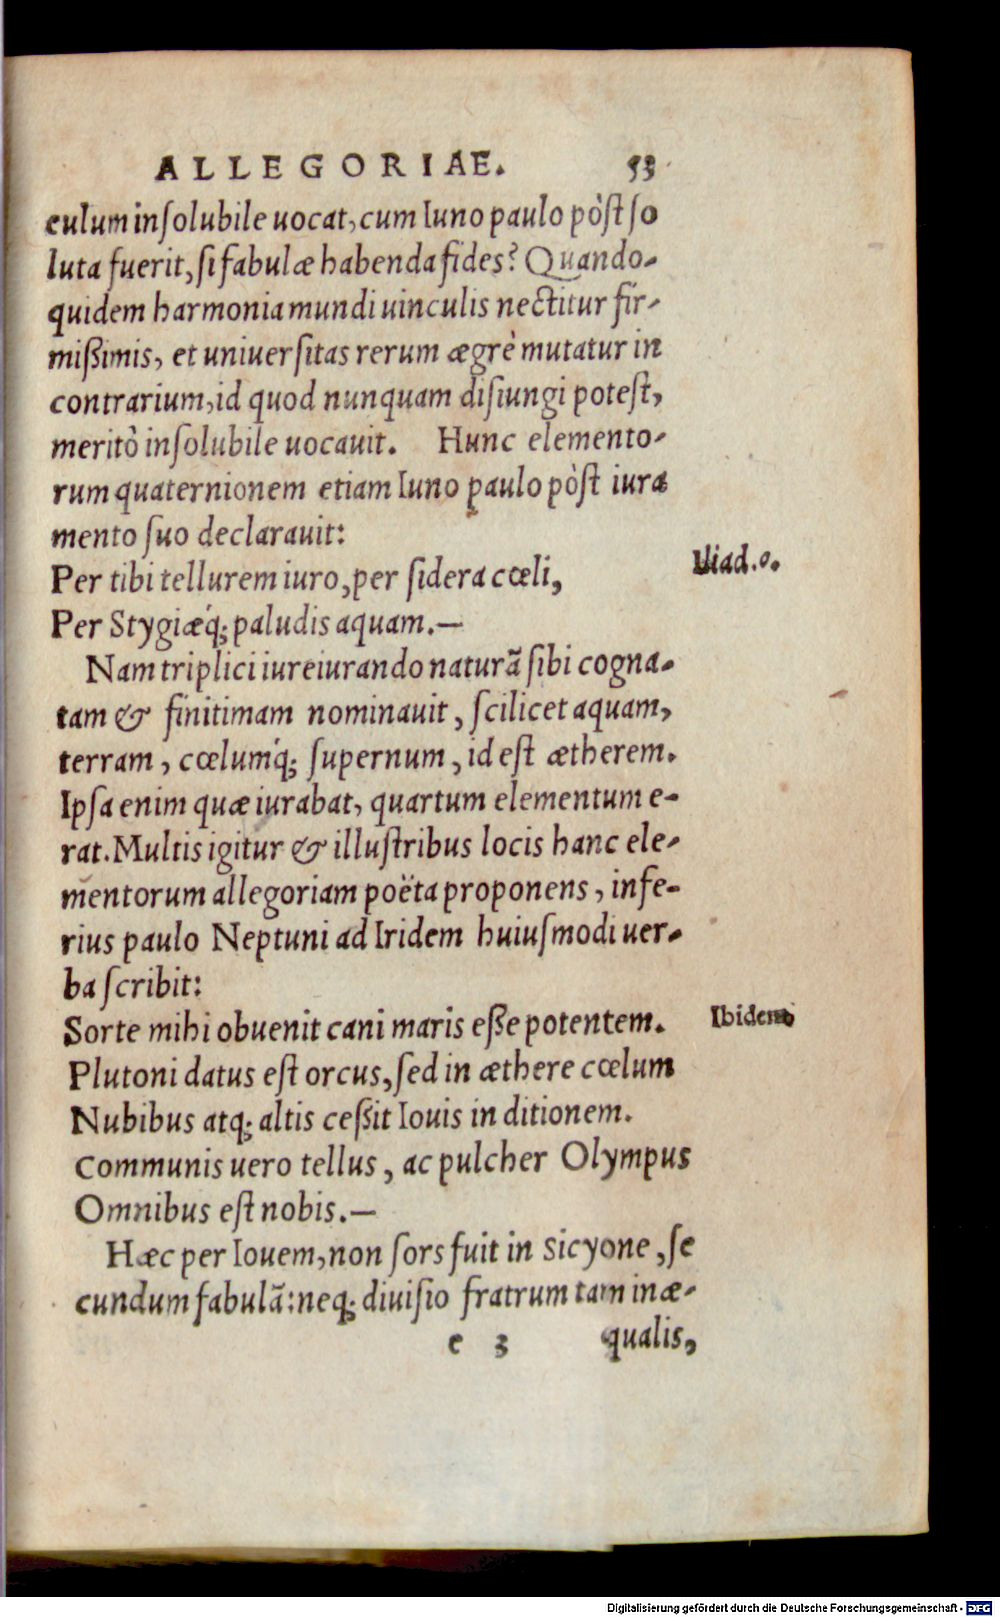 ALLEGORIAE. 53
culum insolubile uocat, cum Iuno paulo pòst so
luta fuerit, si fabulæ habenda fides? Quando-
quidem harmonia mundi uinculis nectitur fir-
mißimis, et uniuersitas rerum ægrè mutatur in
contrarium, id quod nunquam disiungi potest,
meritò insolubile uocauit. Hunc elemento-
rum quaternionem etiam Iuno paulo pòst iura
mento suo declarauit:
Per tibi tellurem iuro, per sidera cœli,
Iliad. o.
Per Stygiæq́; paludis aquam.—
Nam triplici iureiurando naturã sibi cogna-
tam & finitimam nominauit, scilicet aquam,
terram, cœlumq́; supernum, id est ætherem.
Ipsa enim quæ iurabat, quartum elementum e-
rat. Multis igitur & illustribus locis hanc ele-
mentorum allegoriam poëta proponens, infe-
rius paulo Neptuni ad Iridem huiusmodi uer-
ba scribit:
Sorte mihi obuenit cani maris eße potentem.
Ibidem
Plutoni datus est orcus, sed in æthere cœlum
Nubibus atq; altis ceßit Iouis in ditionem.
Communis uero tellus, ac pulcher Olympus
Omnibus est nobis.—
Hæc per Iouem, non sors fuit in Sicyone, se
cundum fabulã: neq; diuisio fratrum tam inæ-
e 3 qualis,
Digitalisierung gefördert durch die Deutsche Forschungsgemeinschaft - DFG